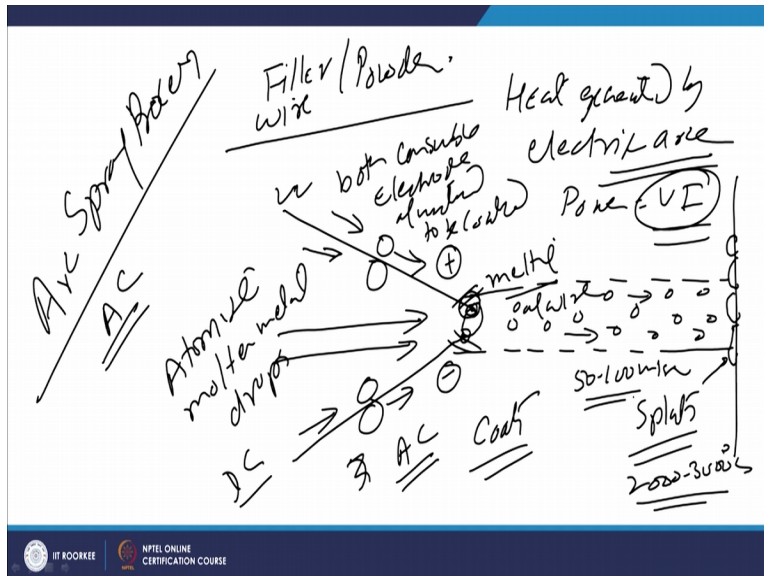 Arc Spray Process
AC
Filler / Powder.
wire
Heat generated by
electric arc
Power = VI
both consumable
electrode
material
to be coated
+
melted
Atomized
molten metal
drops
50-100 m/s
Splats
2000-3000°C
DC
AC
Coat
IIT ROORKEE
NPTEL ONLINE
CERTIFICATION COURSE
NPTEL